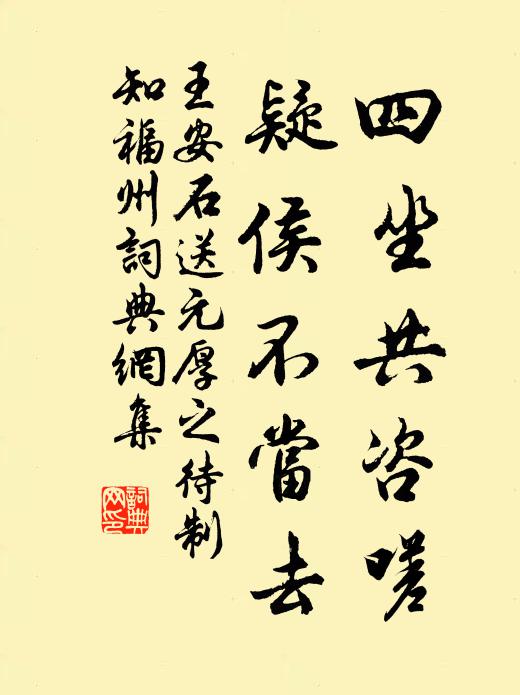 四坐共咨嗟
疑侯不當去
王安石送元厚之待制
知福州詞典網集
詞典网印